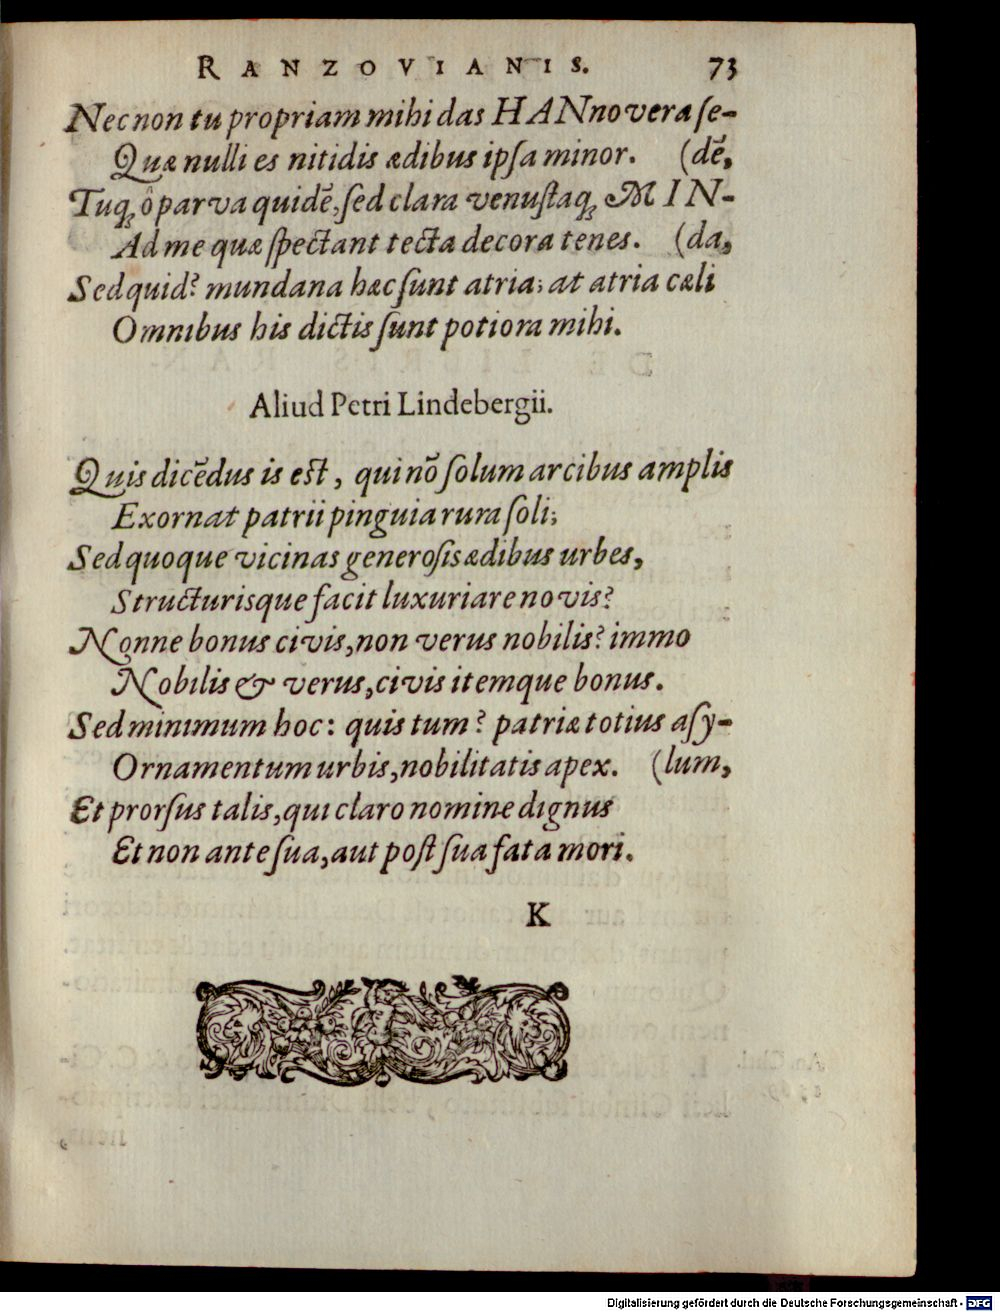 RANZOVIANIS. 73
Nec non tu propriam mihi das HANnovera ſe-
Quæ nulli es nitidis ædibus ipſa minor. (dē,
Tuq́; ô parva quidē, ſed clara venuſtaq́; MIN-
Ad me quæ ſpectant tecta decora tenes. (da,
Sed quid? mundana hæc ſunt atria; at atria cæli
Omnibus his dictis ſunt potiora mihi.
Aliud Petri Lindebergii.
Quis dicēdus is est, qui nō ſolum arcibus amplis
Exornat patrii pinguia rura ſoli;
Sed quoque vicinas generoſis ædibus urbes,
Structurisque facit luxuriare novis?
Nonne bonus civis, non verus nobilis? immo
Nobilis & verus, civis itemque bonus.
Sed minimum hoc: quis tum? patriæ totius aſy-
Ornamentum urbis, nobilitatis apex. (lum,
Et prorſus talis, qui claro nomine dignus
Et non ante ſua, aut poſt ſua fata mori.
K
Digitalisierung gefördert durch die Deutsche Forschungsgemeinschaft - DFG